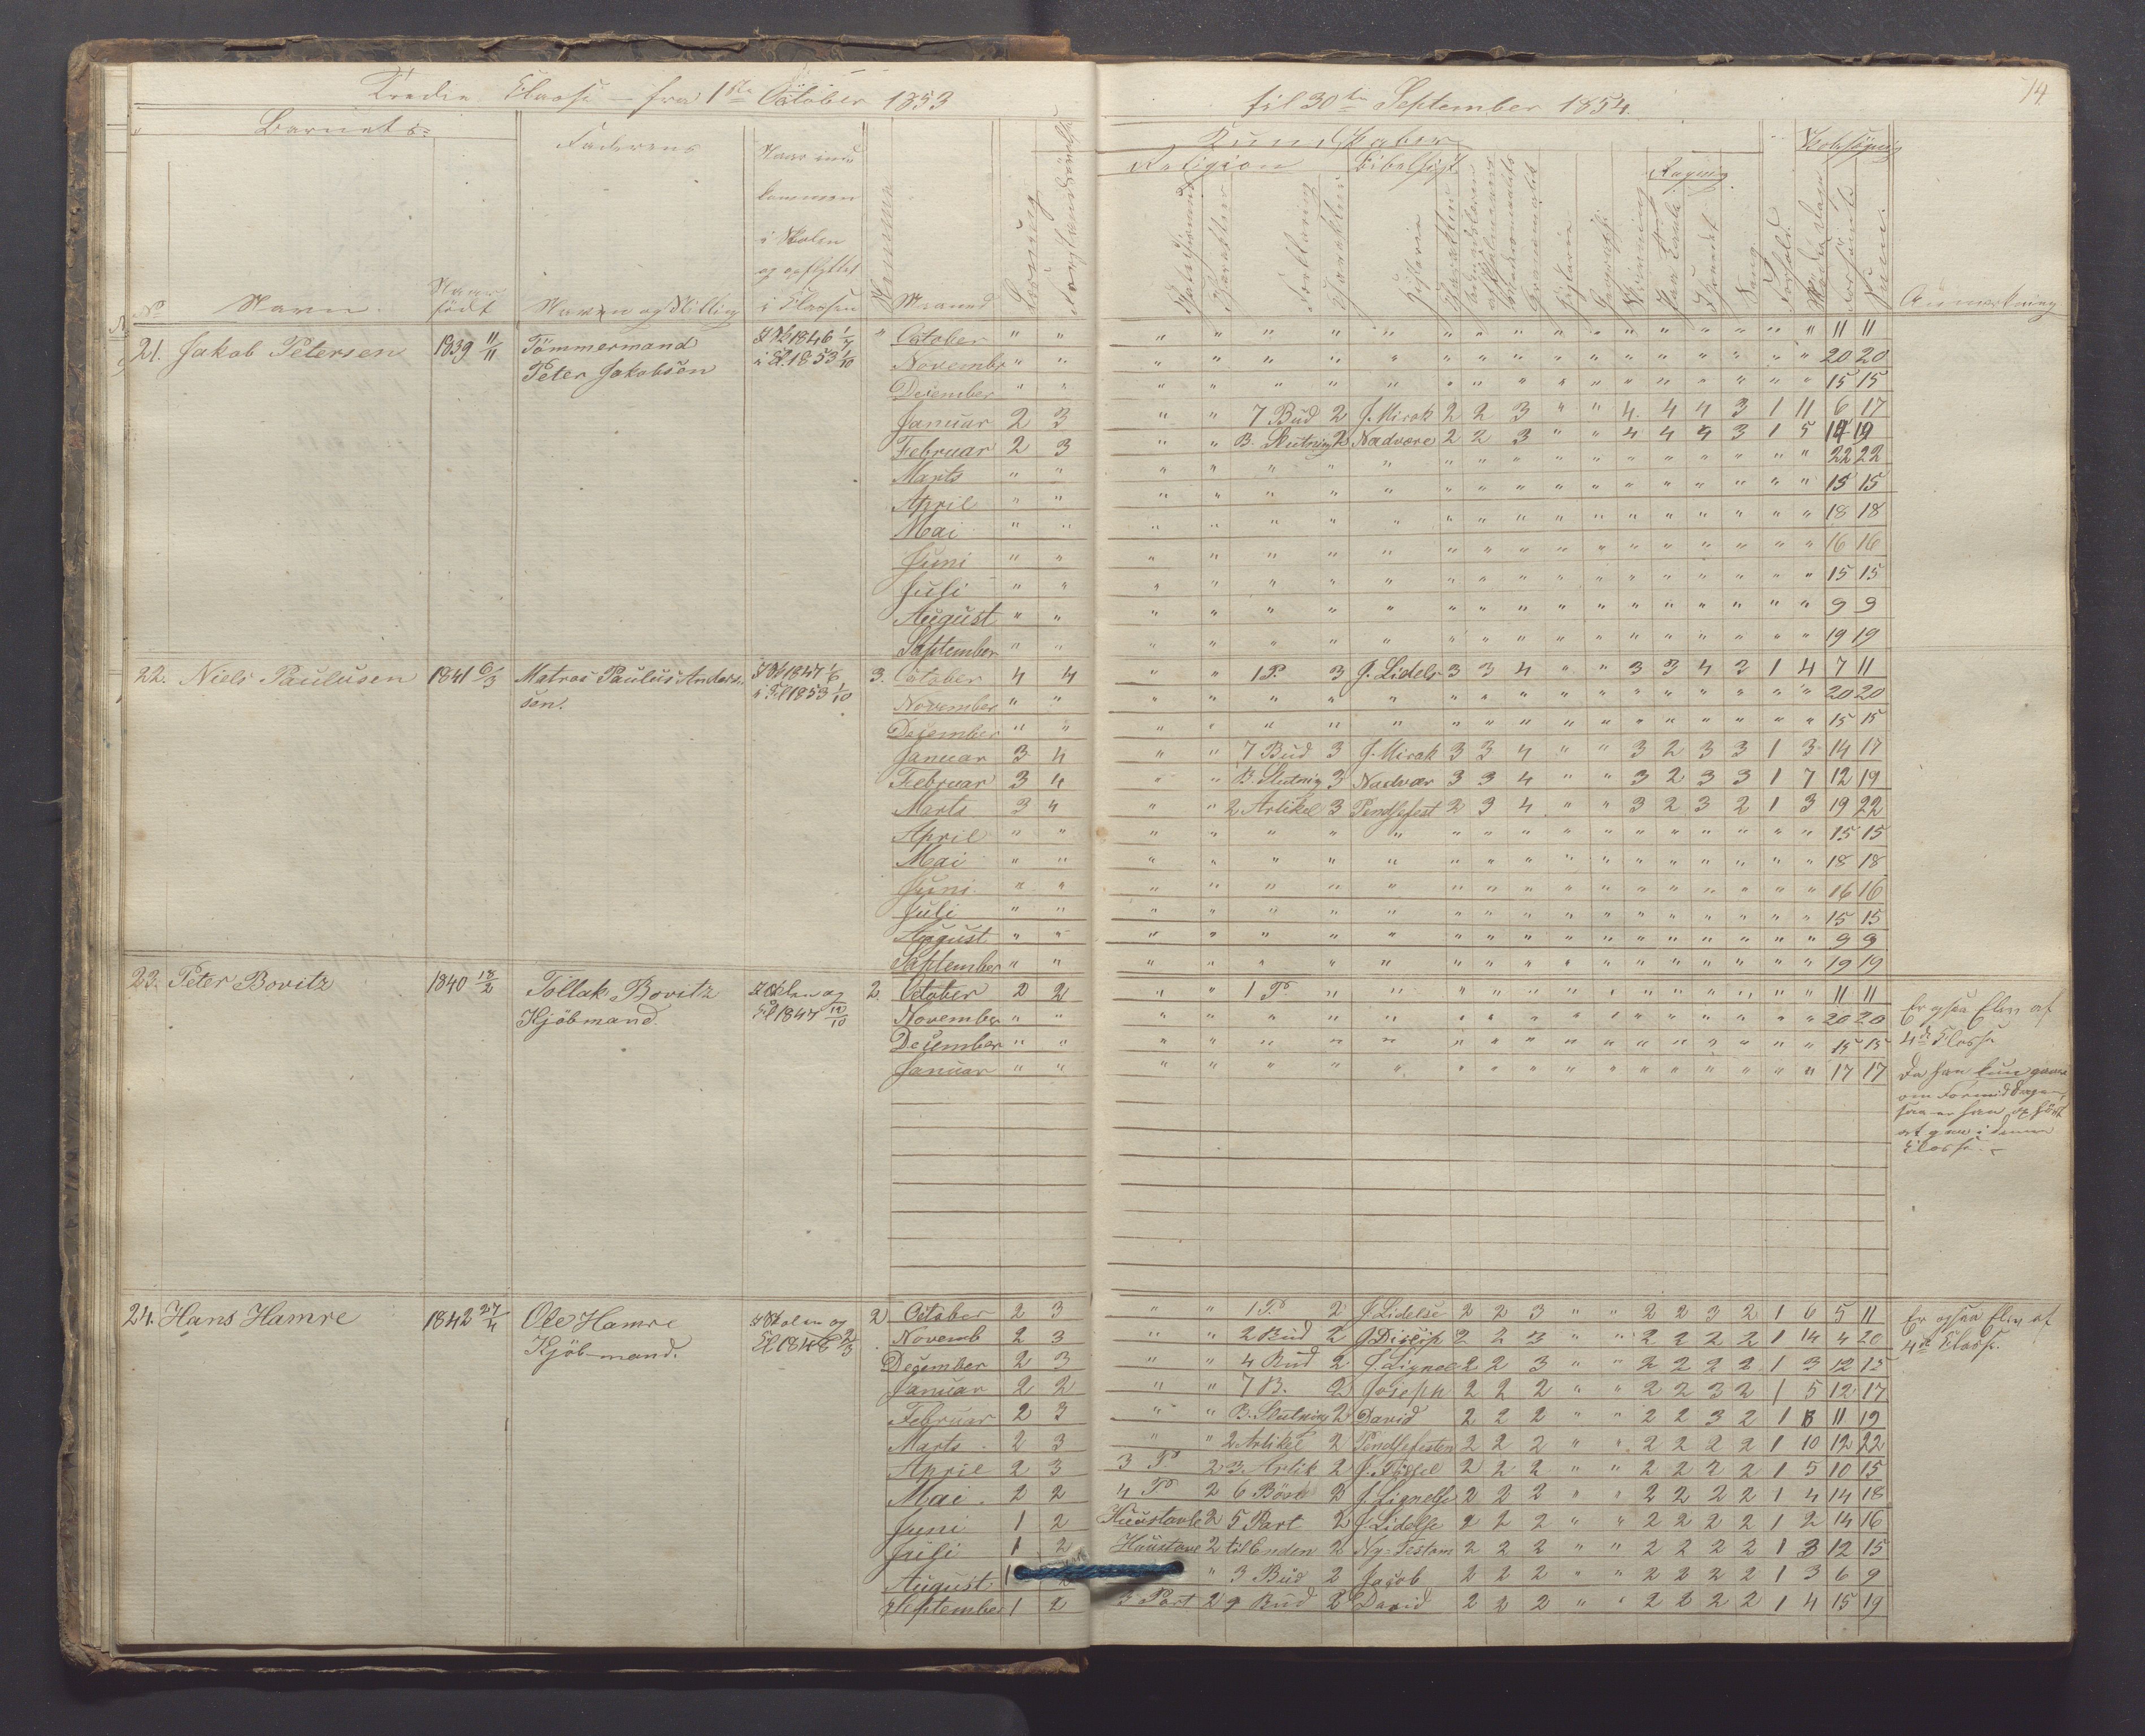 Tredie Classe — fra 1ste October 1853
til 30te September 1854.
74
Barnets
Faderens
Naar ind-
kommen
i Skolen
og opflyttet
i Classen
Kundskaber
Religion
Bibelhist.
Regning
Skolesøgning
No
Navn.
Naar
født
Navn og Stilling
Nummer
Maaned
Læsning
Characteer
Forklaring
Characteer
Historie
Skrivning
Sang
Forhold
Forsømte
Sum.
Anmerkning
21. Jakob Petersen 1839 11/11 Tömmermand
Peter Jakobsen
i Kl. 1853 1/10
October " " " " " " " " " " " " " " " " " " " 11 11
November " " " " " " " " " " " " " " " " " " " 20 20
December " " " " " " " " " " " " " " " " " " " 15 15
Januar 2 3 " " 7 Bud 2 J. Mirak 2 2 3 " " 4 4 4 3 1 11 6 17
Februar 2 3 " " B. Slutning 2 Nadvere 2 2 3 " " 4 4 4 3 1 5 14 19
Marts " " " " " " " " " " " " " " " " " " " 22 22
April " " " " " " " " " " " " " " " " " " " 15 15
Mai " " " " " " " " " " " " " " " " " " " 18 18
Juni " " " " " " " " " " " " " " " " " " " 16 16
Juli " " " " " " " " " " " " " " " " " " " 15 15
August " " " " " " " " " " " " " " " " " " " 9 9
September " " " " " " " " " " " " " " " " " " " 19 19
22. Niels Paulusen 1841 6/3 Matros Paulus Anders-
sen.
i Sk 1847 1/6
i Kl 1853 1/10
3. October 4 4 " " 1 P. 3 J. Lidels 3 3 4 " " 3 3 4 2 1 4 7 11
November " " " " " " " " " " " " " " " " " " " 20 20
December " " " " " " " " " " " " " " " " " " " 15 15
Januar 3 4 " " 7 Bud 3 J. Mirak 3 3 4 " " 3 2 3 3 1 3 14 17
Februar 3 4 " " B. Slutning 3 Nadvær 3 3 4 " " 3 2 3 3 1 7 12 19
Marts 3 4 " " 2 Artikel 3 Pendsefest 2 3 4 " " 3 2 3 2 1 3 19 22
April " " " " " " " " " " " " " " " " " " " 15 15
Mai " " " " " " " " " " " " " " " " " " " 18 18
Juni " " " " " " " " " " " " " " " " " " " 16 16
Juli " " " " " " " " " " " " " " " " " " " 15 15
August " " " " " " " " " " " " " " " " " " " 9 9
September " " " " " " " " " " " " " " " " " " " 19 19
23. Peter Bovitz 1840 18/2 Tollak Bovitz
Kjöbmand.
i Skolen og
Kl 1847 12/10
2. October 2 2 " " 1 P. " " " " " " " " " " " " " 11 11
November " " " " " " " " " " " " " " " " " " " 20 20
December " " " " " " " " " " " " " " " " " " " 15 15
Januar " " " " " " " " " " " " " " " " " " " 17 17
Er ogsaa Elev af
4de Classe
Da han kun
om Formiddagen,
saa er han ophørt
at gaae i denne
Classe.
24. Hans Hamre 1842 27/4 Ole Hamre
Kjöbmand.
i Skolen og
Kl 1848 2/3
2 October 2 3 " " 1 P. 2 J. Lidelse 2 2 3 " " 2 2 3 2 1 6 5 11
Novemb 2 3 " " 2 Bud 2 J. Discip 2 2 3 " " 2 2 2 2 1 14 4 20
December 2 3 " " 4 Bud 2 J. Lignel 2 2 3 " " 2 2 2 2 1 3 12 15
Januar 2 2 " " 7 B. 2 Joseph 2 2 2 " " 2 2 3 2 1 5 12 17
Februar 2 3 " " B. Slutning 2 David 2 2 2 " " 2 2 3 2 1 8 11 19
Marts 2 3 " " 2 Artikel 2 Pendsefesten 2 2 2 " " 2 2 2 2 1 10 12 22
April 2 3 3 P. 2 3 Artik 2 2 2 2 " " 2 2 2 2 1 5 10 15
Mai 2 2 4 P 2 6 Bön 2 J. Lignelse 2 2 2 " " 2 2 2 2 1 4 14 18
Juni 1 2 Huustavle 2 5 Part 2 J. Lidelse 2 2 2 " " 2 2 2 2 1 2 14 16
Juli 1 2 Huustavl 2 til Enden 2 Ny-Testam 2 2 2 " " 2 2 2 2 1 3 12 15
August 1 2 " 3 Bud 2 Jacob 2 2 2 " " 2 2 2 2 1 3 6 9
September 1 2 3 Part 2 9 Bud 2 David 2 2 2 " " 2 2 2 2 1 4 15 19
Er ogsaa Elev af
4de Classe.